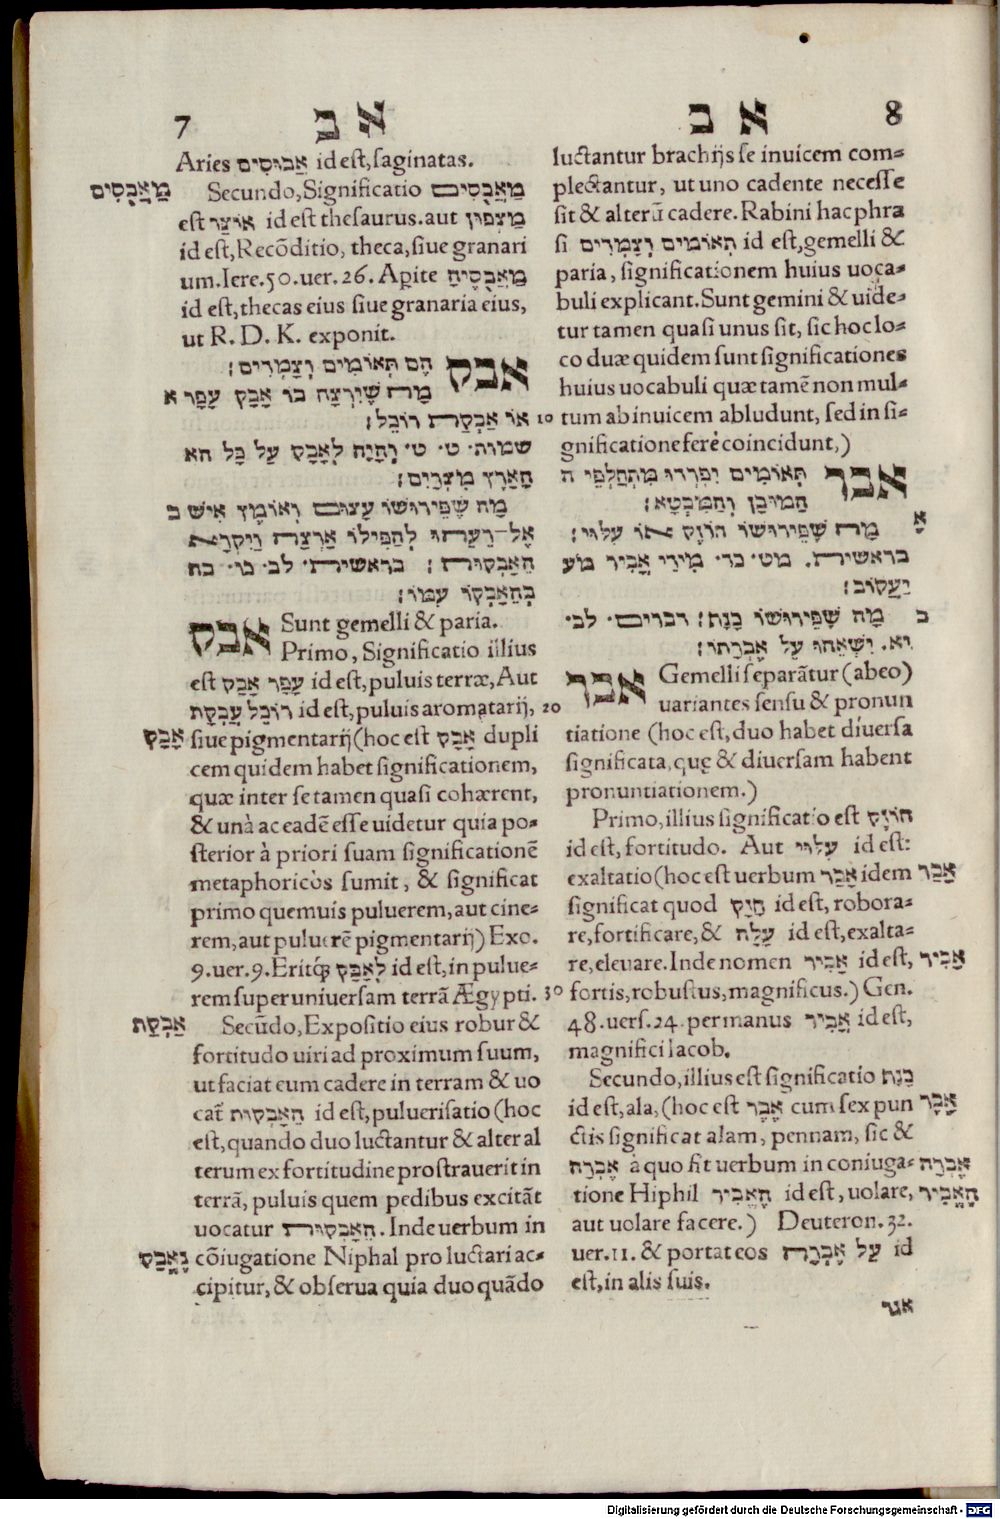 7 אב
Aries אֲבוּסִים id est, saginatas.
מַאֲבֻסִים Secundo, Significatio מַאֲבֻסִים
est אוֹצַר id est thesaurus. aut מַצפוּן
id est, Recõditio, theca, siue granari
um. Iere. 50. uer. 26. Apite מַאֲבֻסֶיהָ
id est, thecas eius siue granaria eius,
ut R. D. K. exponit.
אבק הֶם תְּאוֹמִים וְצָמְרִים׃
מַה שֶׁיִרְצָה בו אָבָק עָפָר א
אוֹ אַבְקַת רוֹכֵל׃ 10
שמות. ט. ט. וְהָיָה לְאָבָק עַל כָּל הא
הָאָרֶץ מִצְרַיִם׃
מַה שֶׁפֵּירוּשׁוֹ עָצוּם וְאוֹמֶץ אִישׁ ב
אֶל רֵעֵהוּ לְהַפִּילוֹ אַרְצָה וַיִקְרָא
הֵאָבְקוּת׃ בראשית. לב. כו. בה
בְּהֵאָבְקוֹ עִמּוֹ׃
אבק Sunt gemelli & paria.
Primo, Significatio illius
est עָפָר אָבַק id est, puluis terræ, Aut
רוֹכַל עֲבְקַת id est, puluis aromatarij, 20
אָבָק siue pigmentarij (hoc est אָבָק dupli
cem quidem habet significationem,
quæ inter se tamen quasi cohærent,
& unà ac eadẽ esse uidetur quia po-
sterior à priori suam significationẽ
metaphoricòs sumit, & significat
primo quemuis puluerem, aut cine-
rem, aut puluerẽ pigmentarij) Exo.
9. uer. 9. Eritq; לְאָבָק id est, in pulue-
rem super uniuersam terrã Ægypti. 30
אַבְקַת Secũdo, Expositio eius robur &
fortitudo uiri ad proximum suum,
ut faciat eum cadere in terram & uo
cat̃ הֵאָבְקוּת id est, puluerisatio (hoc
est, quando duo luctantur & alter al
terum ex fortitudine prostrauerit in
terrã, puluis quem pedibus excitãt
uocatur הֵאָבְקוּת. Inde uerbum in
נֶאֱבַק cõiugatione Niphal pro luctari ac-
cipitur, & obserua quia duo quãdo
אב 8
luctantur brachijs se inuicem com-
plectantur, ut uno cadente necesse
sit & alterũ cadere. Rabini hac phra
si תְאוֹמִים וְצָמְרִים id est, gemelli &
paria, significationem huius uoca-
buli explicant. Sunt gemini & uide-
tur tamen quasi unus sit, sic hoc lo-
co duæ quidem sunt significationes
huius uocabuli quæ tamẽ non mul-
tum ab inuicem abludunt, sed in si-
gnificatione ferè coincidunt,)
אבר תְּאוֹמִים יִפְרְדוּ מִתְחַלְּפֵי ה
הַמּוּבָן וְהַמִּבְטָא׃
א מַה שֶׁפֵּירוּשׁוֹ חוֹזֶק או עִלּוּי׃
בראשית. מט. כד. מִידֵי אֲבִיר מע
יַעֲקוֹב׃
ב מַה שֶׁפֵּירוּשׁוֹ כָּנָת׃ דברים. לב.
יא. יִשָּׂאֵהוּ עַל אֶבְרָתוֹ׃
אבר Gemelli separãtur (ab eo)
uariantes sensu & pronun
tiatione (hoc est, duo habet diuersa
significata, quę & diuersam habent
pronuntiationem.)
Primo, illius significatio est חוֹזֶק
id est, fortitudo. Aut עִלּוּי id est:
exaltatio (hoc est uerbum אָבַר idem אָבַר
significat quod חָזַק id est, robora-
re, fortificare, & עָלָה id est, exalta-
re, eleuare. Inde nomen אֲבִיר id est, אֲבִיר
fortis, robustus, magnificus.) Gen.
48. uers. 24. per manus אֲבִיר id est,
magnifici Iacob.
Secundo, illius est significatio כָּנָת
id est, ala, (hoc est אֶבֶר cum sex pun אֵבֶר
ctis significat alam, pennam, sic &
אֶבְרָה à quo fit uerbum in coniuga- אֶבְרָה
tione Hiphil הֶאֱבִיר id est, uolare, הֶאֱבִיר
aut uolare facere.) Deuteron. 32.
uer. 11. & portat eos עַל אֶבְרָה id
est, in alis suis.
אגר
Digitalisierung gefördert durch die Deutsche Forschungsgemeinschaft - DFG